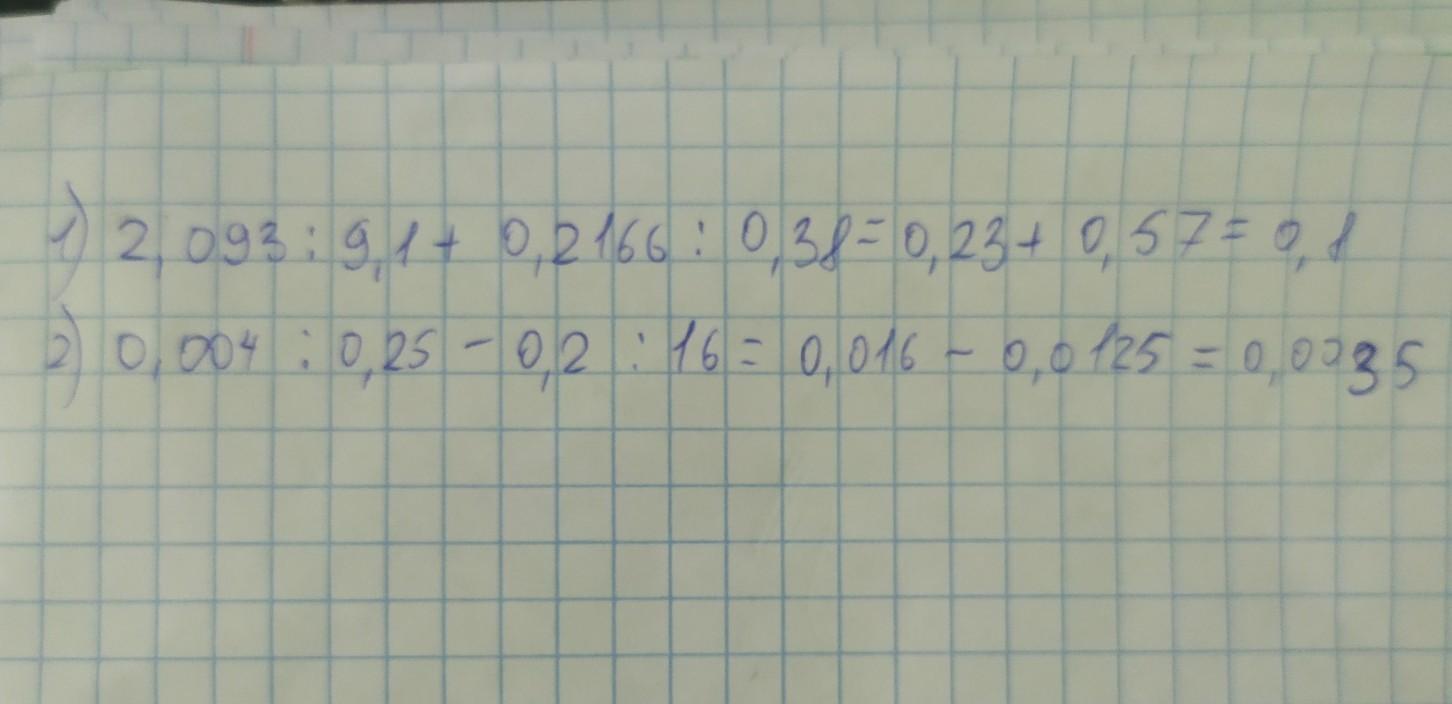 1) 2,093 : 9,1 + 0,2166 : 0,38 = 0,23 + 0,57 = 0,8
2) 0,004 : 0,25 - 0,2 : 16 = 0,016 - 0,0125 = 0,0035